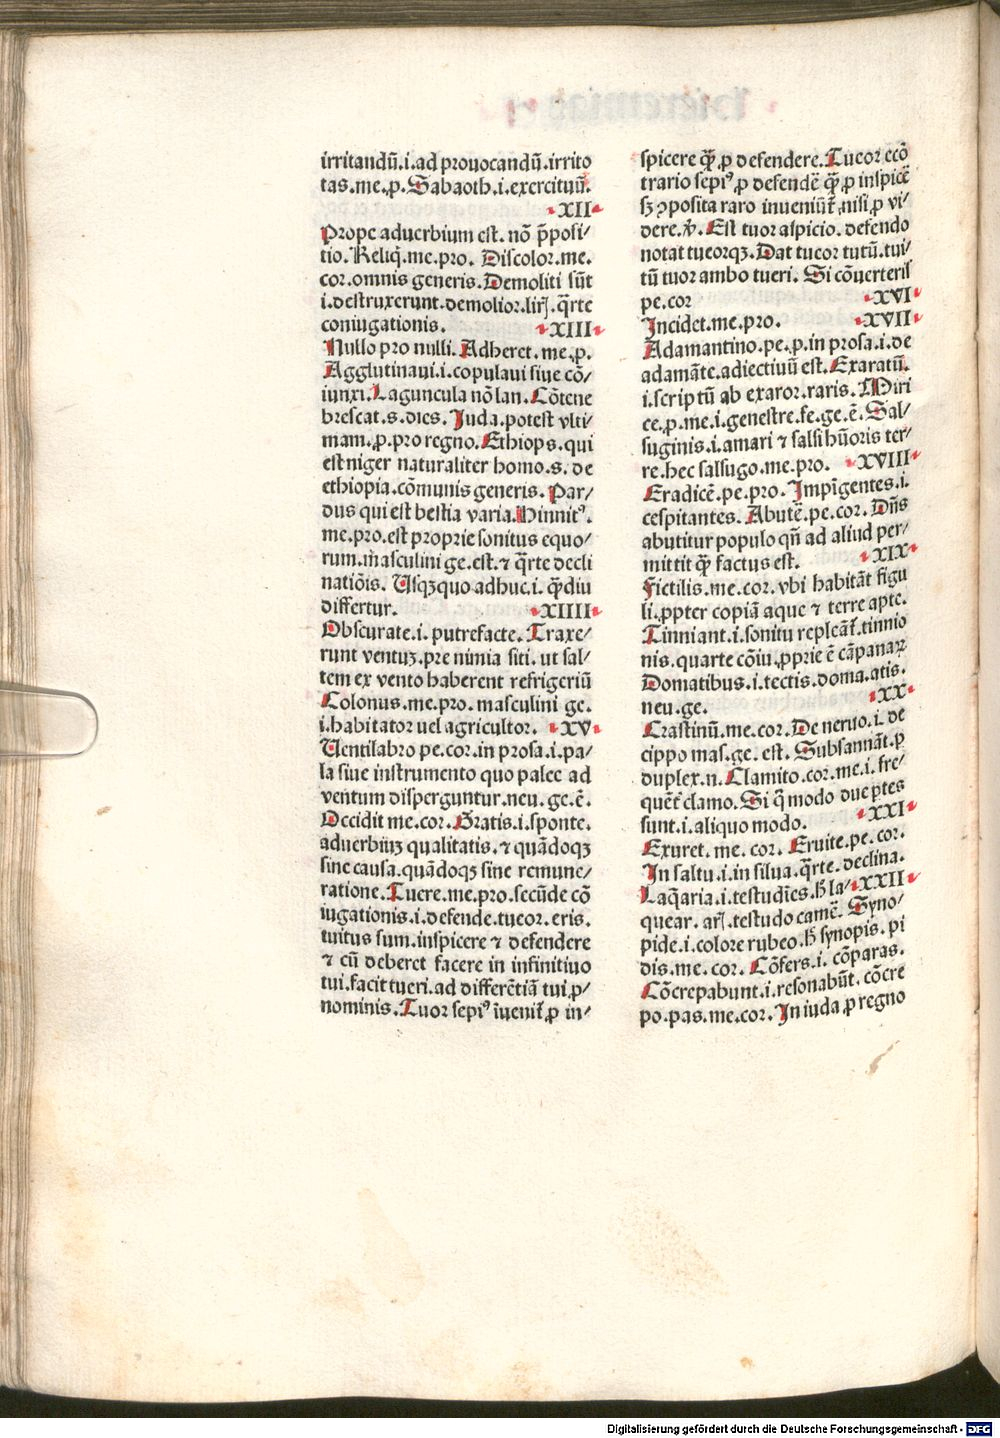 irritandū.i.ad prouocandū.irrito
tas.me.ꝓ. Sabaoth.i.exercituū.
XII
Prope aduerbium est. nō p̄posi/
tio. Reliq̄.me.pro. Discolor.me.
cor.omnis generis. Demoliti sūt
i.destruxerunt.demolior.liri̢.q̄rte
coniugationis.
XIII
Nullo pro nulli. Adheret.me.ꝓ.
Agglutinaui.i.copulaui siue cō/
iunxi. Laguncula nō lan. Cōtene
brescat.s.dies. Iuda.potest vlti-
mam.ꝓ.pro regno. Ethiops.qui
est niger naturaliter homo.s.de
ethiopia.cōmunis generis. Par/
dus qui est bestia varia. Hinnitꝰ.
me.pro.est proprie sonitus equo/
rum.masculini ge.est.⁊ q̄rte decli
natiōis. Usqꝫquo adhuc.i.q̄diu
differtur.
XIIII
Obscurate.i.putrefacte. Traxe/
runt ventuꝫ.pre nimia siti.ut sal/
tem ex vento haberent refrigeriū
Colonus.me.pro.masculini ge.
i.habitator uel agricultor.
XV
Uentilabro pe.cor.in prosa.i.pa/
la siue instrumento quo palee ad
ventum disperguntur.neu.ge.ē.
Occidit me.cor. Gratis.i.sponte.
aduerbiuꝫ qualitatis.⁊ quādoqꝫ
sine causa.quādoqꝫ sine remune/
ratione. Tuere.me.pro.secūde cō
iugationis.i.defende.tueor.eris.
tuitus sum.inspicere ⁊ defendere
⁊ cū deberet facere in infinitiuo
tui.facit tueri.ad differētiā tui.ꝓ/
nominis. Tuor sepiꝰ īuenit̄ ꝓ in/
spicere q̄ꝫ ꝓ defendere. Tueor ecō
trario sepiꝰ ꝓ defendē q̄ꝫ ꝓ inspicē
sꝫ ꝯposita raro inueniūt̄ nisi ꝓ vi/
dere. ꝟ. Est tuor aspicio. defendo
notat tueorqꝫ. Dat tueor tutū.tui/
tū tuor ambo tueri. Si cōuerteris
pe.cor
XVI
Incidet.me.pro.
XVII
Adamantino.pe.ꝓ.in prosa.i.de
adamāte.adiectiuū est. Exaratū.
i.scriptū ab exaror.raris. Miri
ce.ꝓ.me.i.genestre.fe.ge.ē. Sal/
suginis.i.amari ⁊ salsi hūoris ter/
re.hec salsugo.me.pro.
XVIII
Eradicē.pe.pro. Impīgentes.i.
cespitantes. Abutē.pe.cor. Dn̄s
abutitur populo qn̄ ad aliud per/
mittit q̄ꝫ factus est.
XIX
Fictilis.me.cor.vbi habitāt figu
li.ꝓpter copiā aque ⁊ terre apte.
Tinniant.i.sonitu repleāt̄.tinnio
nis.quarte cōiu.ꝓprie ē cāpanaꝝ
Domatibus.i.tectis.doma.atis.
neu.ge.
XX
Crastinū.me.cor. De neruo.i.de
cippo mas.ge.est. Subsannāt.ꝓ
duplex.n. Clamito.cor.me.i.fre/
quēt̄ clamo. Si q̄ modo due ꝑtes
sunt.i.aliquo modo.
XXI
Exuret.me.cor. Eruite.pe.cor.
In saltu.i.in silua.q̄rte.declina.
XXII
Laq̄aria.i.testudīes. h̄ la/
quear.ari̢.testudo camē. Syno/
pide.i.colore rubeo.h̄ synopis.pi
dis.me.cor. Cōfers.i.cōparas.
Cōcrepabunt.i.resonabūt.cōcre
po.pas.me.cor. In iuda ꝓ regno
Digitalisierung gefördert durch die Deutsche Forschungsgemeinschaft - DFG